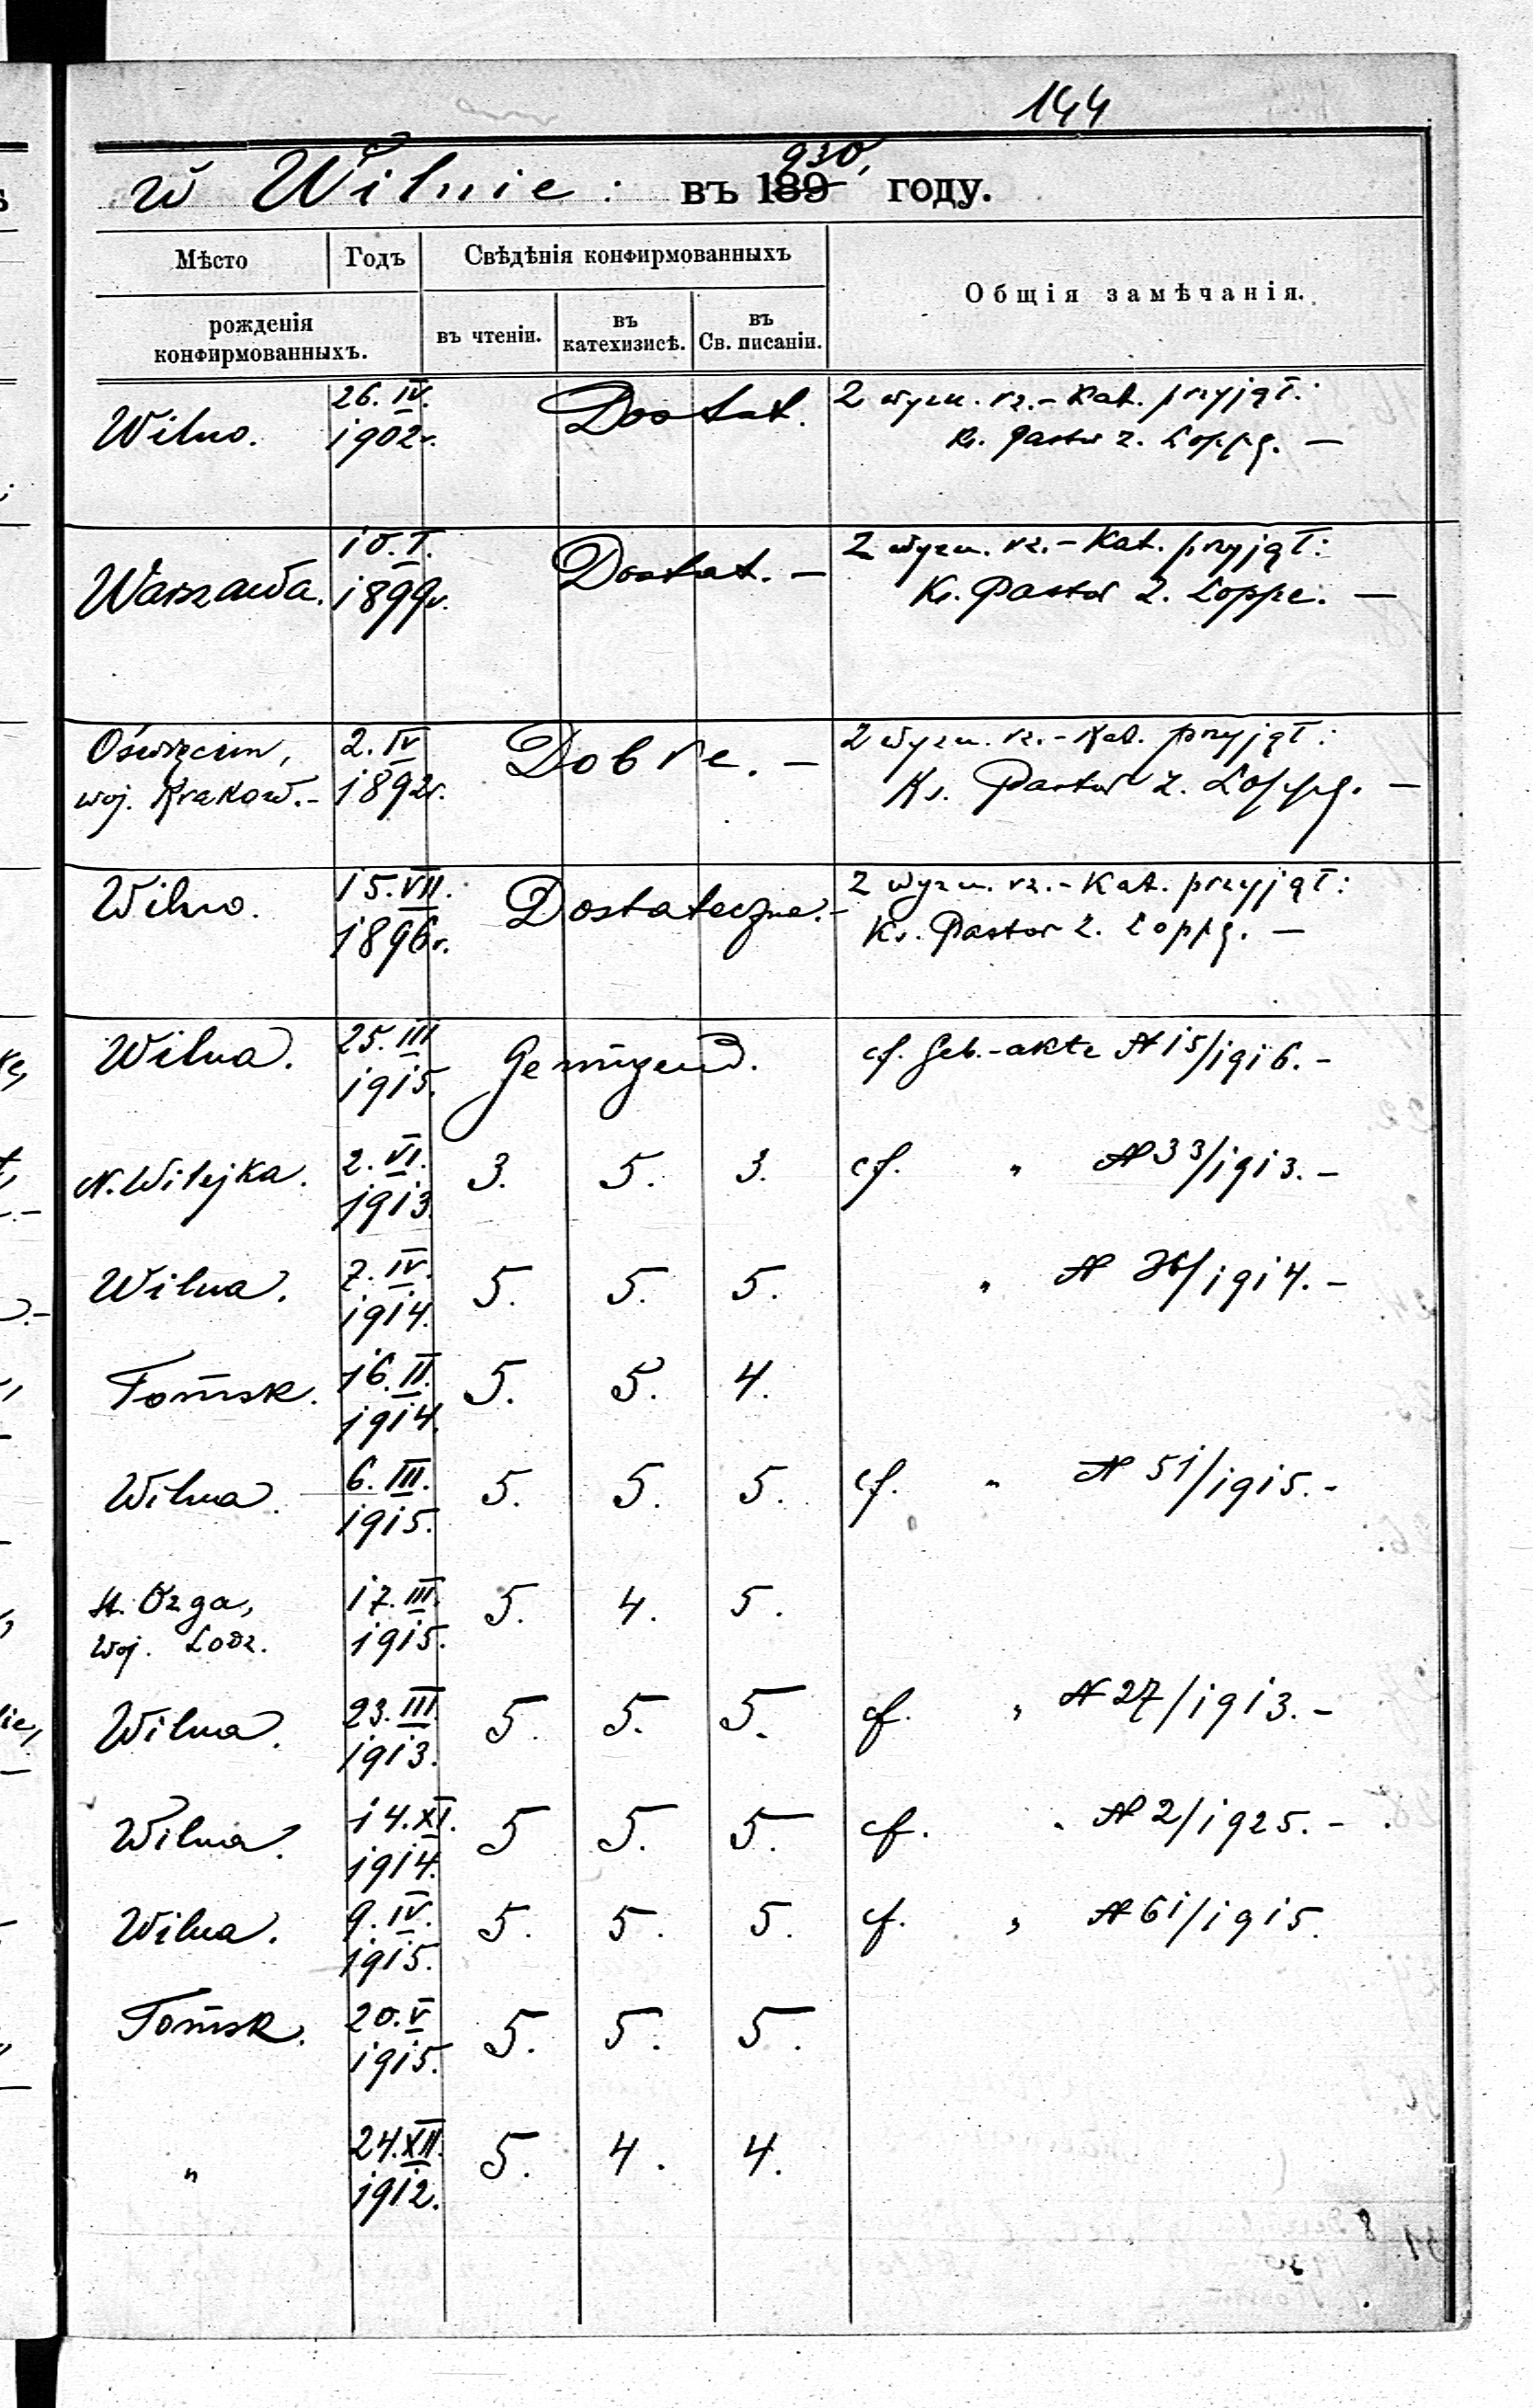 144
w Wilnie: въ 1930, году.
Мѣсто Годъ Свѣдѣнія конфирмованныхъ Общія замѣчанія.
рожденія конфирмованныхъ. въ чтеніи. въ катехизисѣ. въ Св. писаніи.
Wilno. 26. IV. 1902r. Dostat. z wyzn. rz.-kat. przyjął:
Ks. Pastor Z. Loppe. —
Warszawa. 10. I. 1899r. Dostat. — z wyzn. rz.-kat. przyjął:
Ks. Pastor Z. Loppe. —
Oświęcim, 2. IV Dobre. — z wyzn. rz.-kat. przyjął:
woj. Krakow.- 1892r. Ks. Pastor Z. Loppe. —
Wilno. 15. VII. 1896r. Dostateczne.- z wyzn. rz.-kat. przyjął:
Ks. Pastor Z. Loppe. —
Wilna. 25. III 1915. Genügend. cf. Geb.-akte N 15/1916.-
N. Wilejka. 2. VI. 1913. 3. 5. 3. cf. " N 33/1913.-
Wilna. 7. IV. 1914. 5. 5. 5. " N 36/1914.-
Tomsk. 16. II. 1914. 5. 5. 4.
Wilna. 6. III. 1915. 5. 5. 5. cf. " N 51/1915.-
17. III. 5. 4. 5.
Woj. Lodz. 1915.
Wilna. 23. III. 1913. 5. 5. 5. cf. " N 27/1913.-
Wilna. 14. XI. 1914. 5 5. 5. cf. " N 2/1925.-
Wilna. 9. IV. 1915. 5. 5. 5. cf. " N 61/1915.
Tomsk. 20. V 1915. 5. 5. 5.
" 24. XII. 1912. 5. 4. 4.